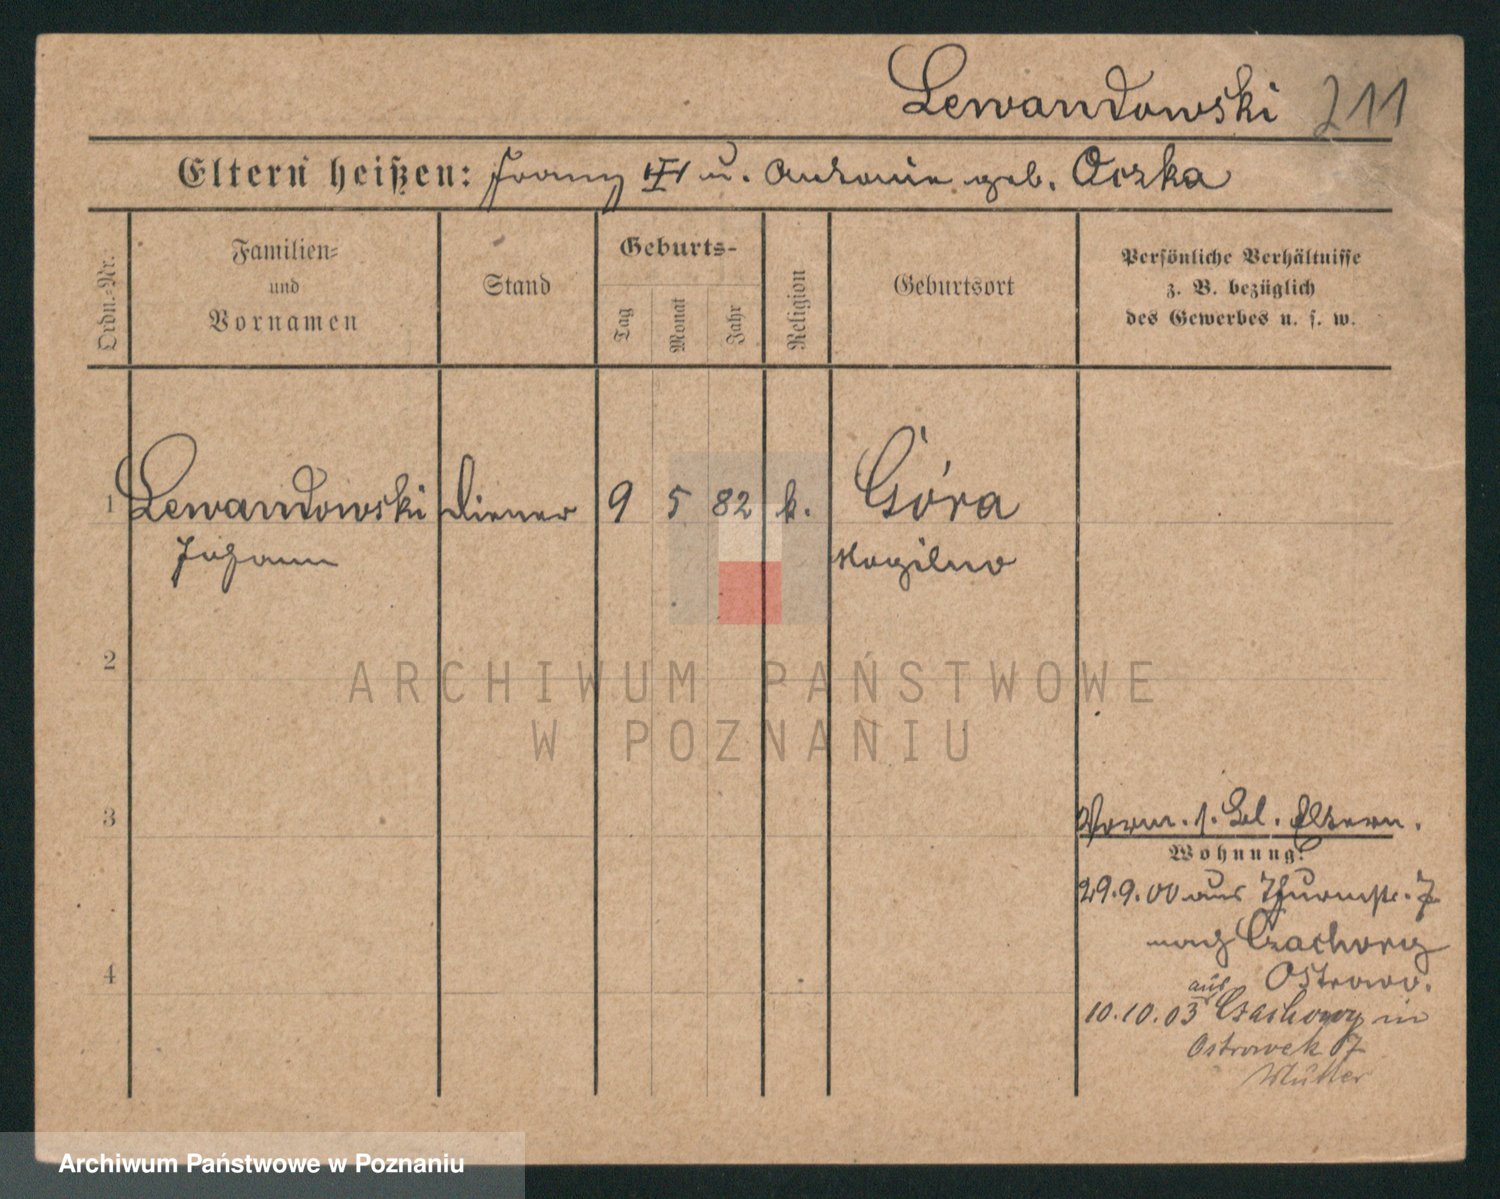 Lewandowski 211
Eltern heißen: Franz III u. Antonie geb. Oczka
Ordn.-Nr.
Familien-
und
Vornamen
Stand
Geburts-
Tag
Monat
Jahr
Religion
Geburtsort
Persönliche Verhältnisse
z. B. bezüglich
des Gewerbes u. s. w.
1 Lewandowski Diener 9 5 82 k. Góra
Johann Mogilno
2
ARCHIWUM PAŃSTWOWE
W POZNANIU
3
Vorm. s. Bl. Eltern.
Wohnung:
29.9.00 aus Thurmstr. 7
nach Czachory
4
Ostrowo.
aus
10.10.03 Czachory in
Ostrowek 07
Mütter
Archiwum Państwowe w Poznaniu